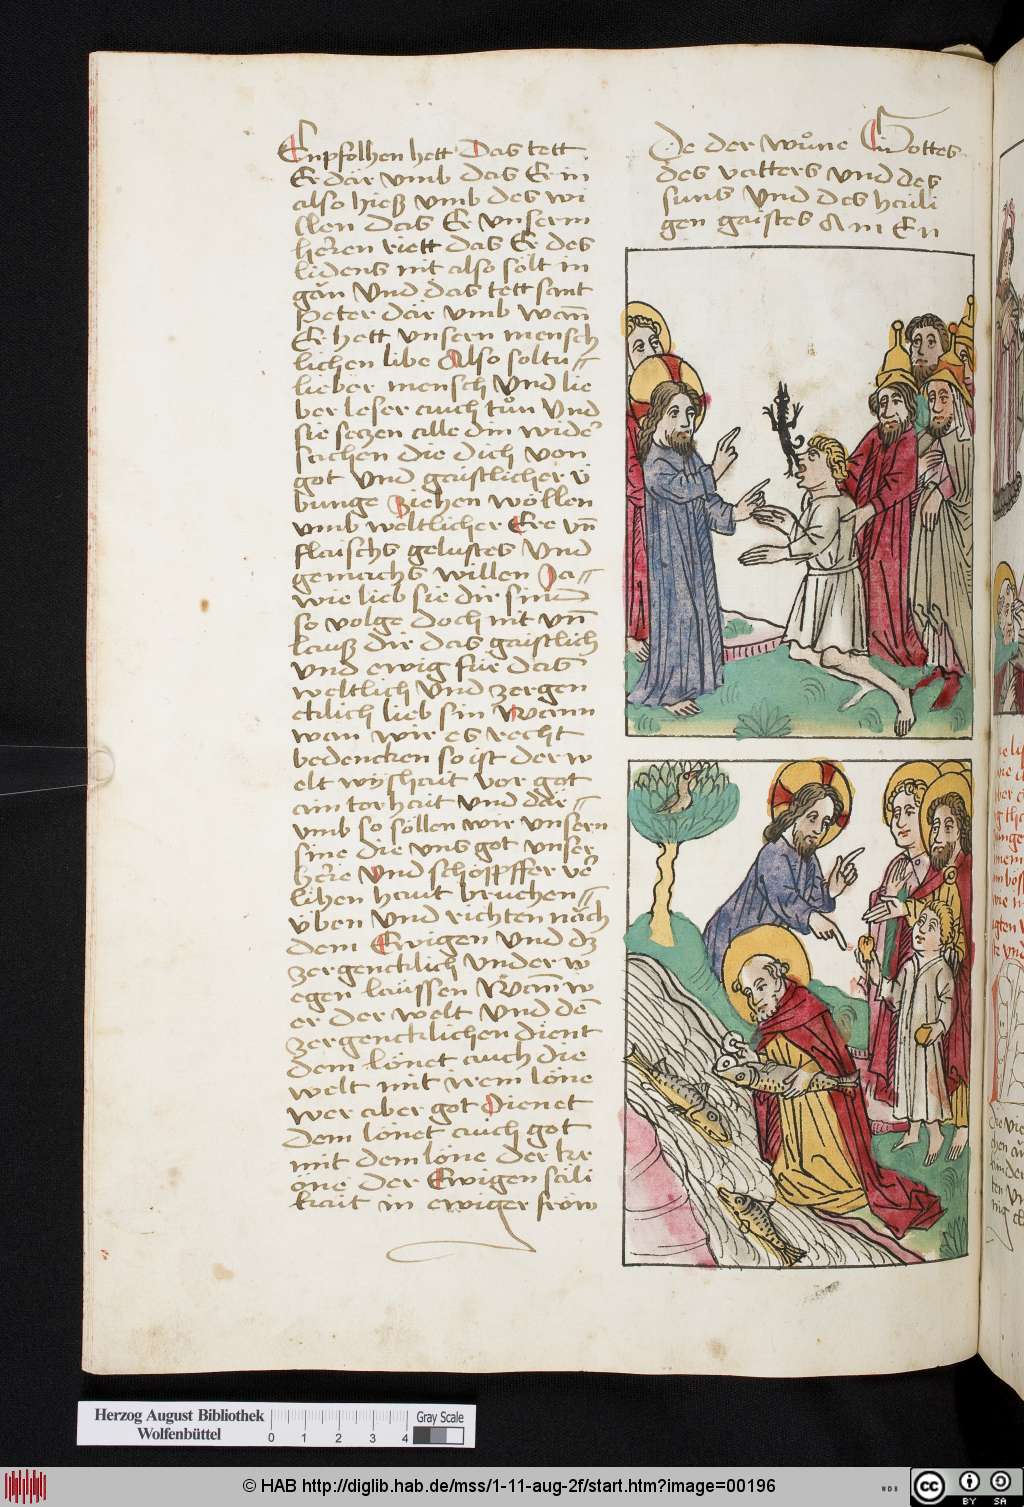 Enpfolhen hett Das tett
Er där vmb das Er in
also hieß vmb des wi
llen das Er vnserm
heren riett das Er des
lidens nit also sölt in
gän Vnd das tett sant
Peter där vmb wañ
Er hett vnsern mensch
lichen libe Also soltu
lieber mensch Vnd lie
ber leser auch tůn Vnd
sie seczen alle din wider
sachen die dich von
got Vnd gaistlicher ü
bunge Ziehen wöllen
vmb weltlicher Ere vñ
flaischs gelustes Vnd
gemachs willen Ja
wie lieb sie dir sind
so volge doch nit vñ
lauß dir das gaistlich
vnd ewig für das
weltlich Vnd zergen
cklich lieb sin Wann
wan wir es recht
bedencken so ist der w
elt wÿshait vor got
ain torhait vnd där
vmb so söllen wir vnsern
sine die vns got vnser
here Vnd schöpffer ve
lihen haut bruchen
Vben vnd richten näch
dem Ewigen vnd dz
zergencklich vnder w
egen laüssen Wañ w
er der welt vnd dem
zergencklichen dient
dem lönet auch die
welt mit wem löne
wer aber got Dienet
dem lönet auch got
mit dem löne der kr
öne der Ewigen säli
kait in ewiger fröw
De der wůne In Gottes
des vatters vnd des
suns Vnd des haili
gen gaistes Amen
Herzog August Bibliothek
Wolfenbüttel
0 1 2 3 4
Gray Scale
© HAB http://diglib.hab.de/mss/1-11-aug-2f/start.htm?image=00196
WDB
cc BY SA